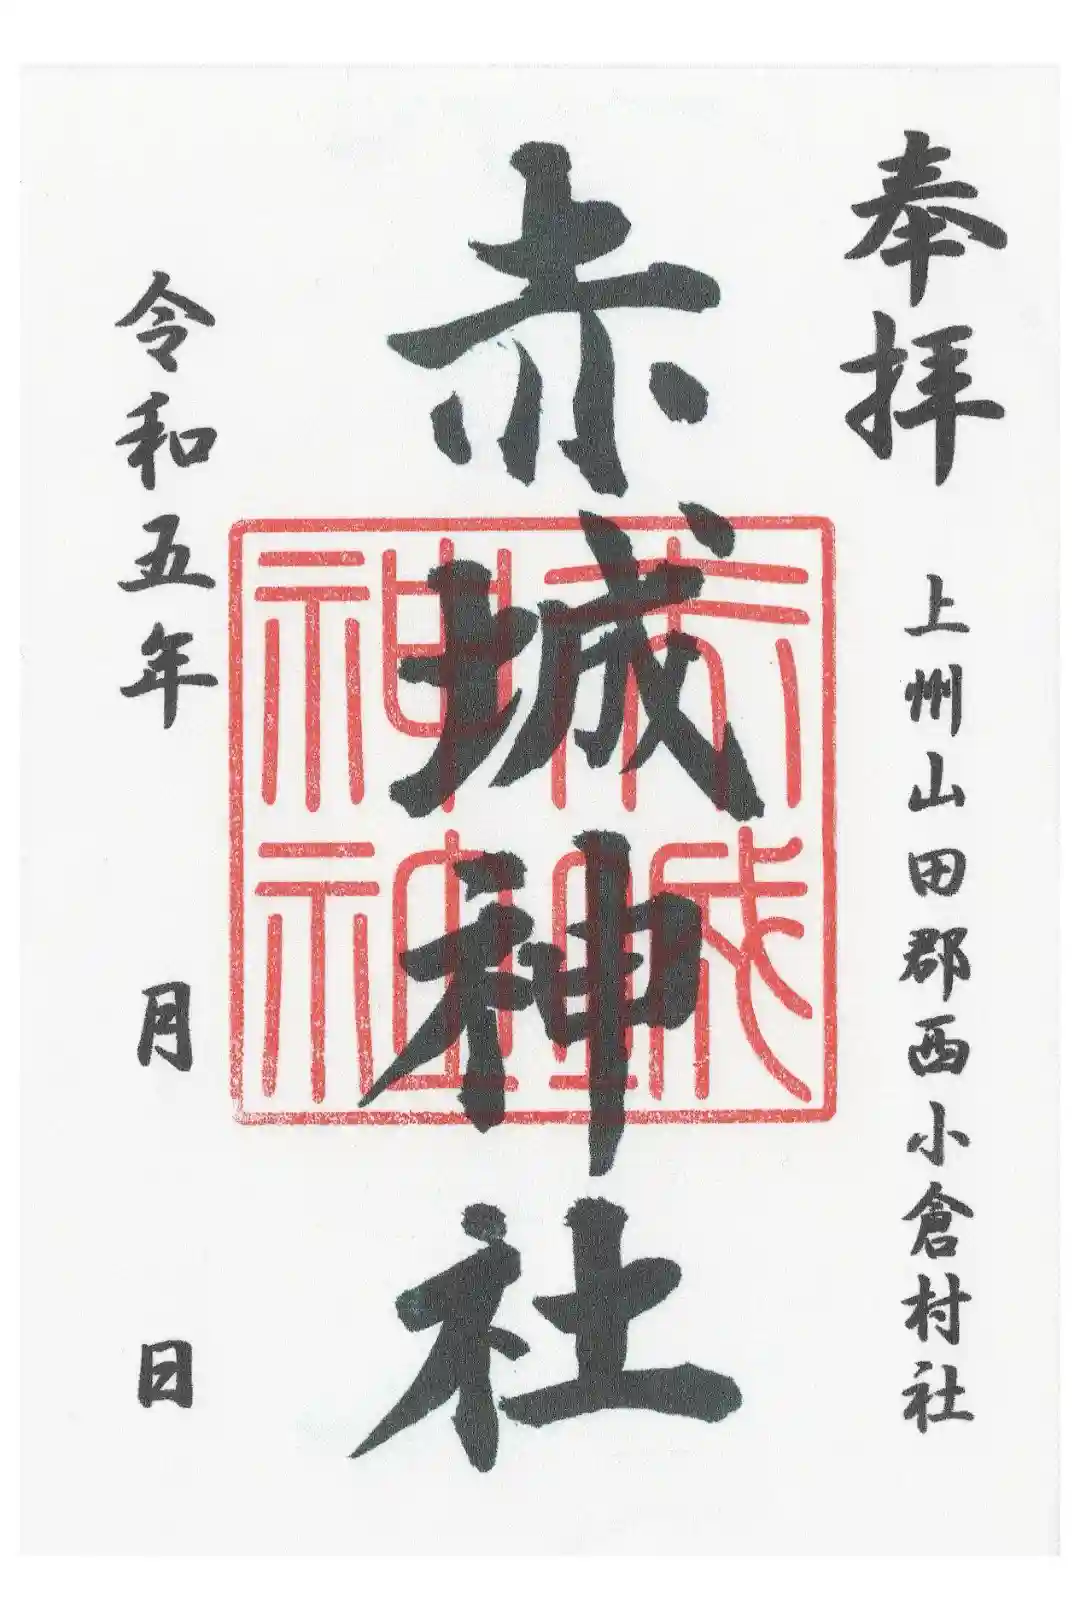 奉拝
上州山田郡西小倉村社
赤城神社
赤城
神社
令和五年 月 日